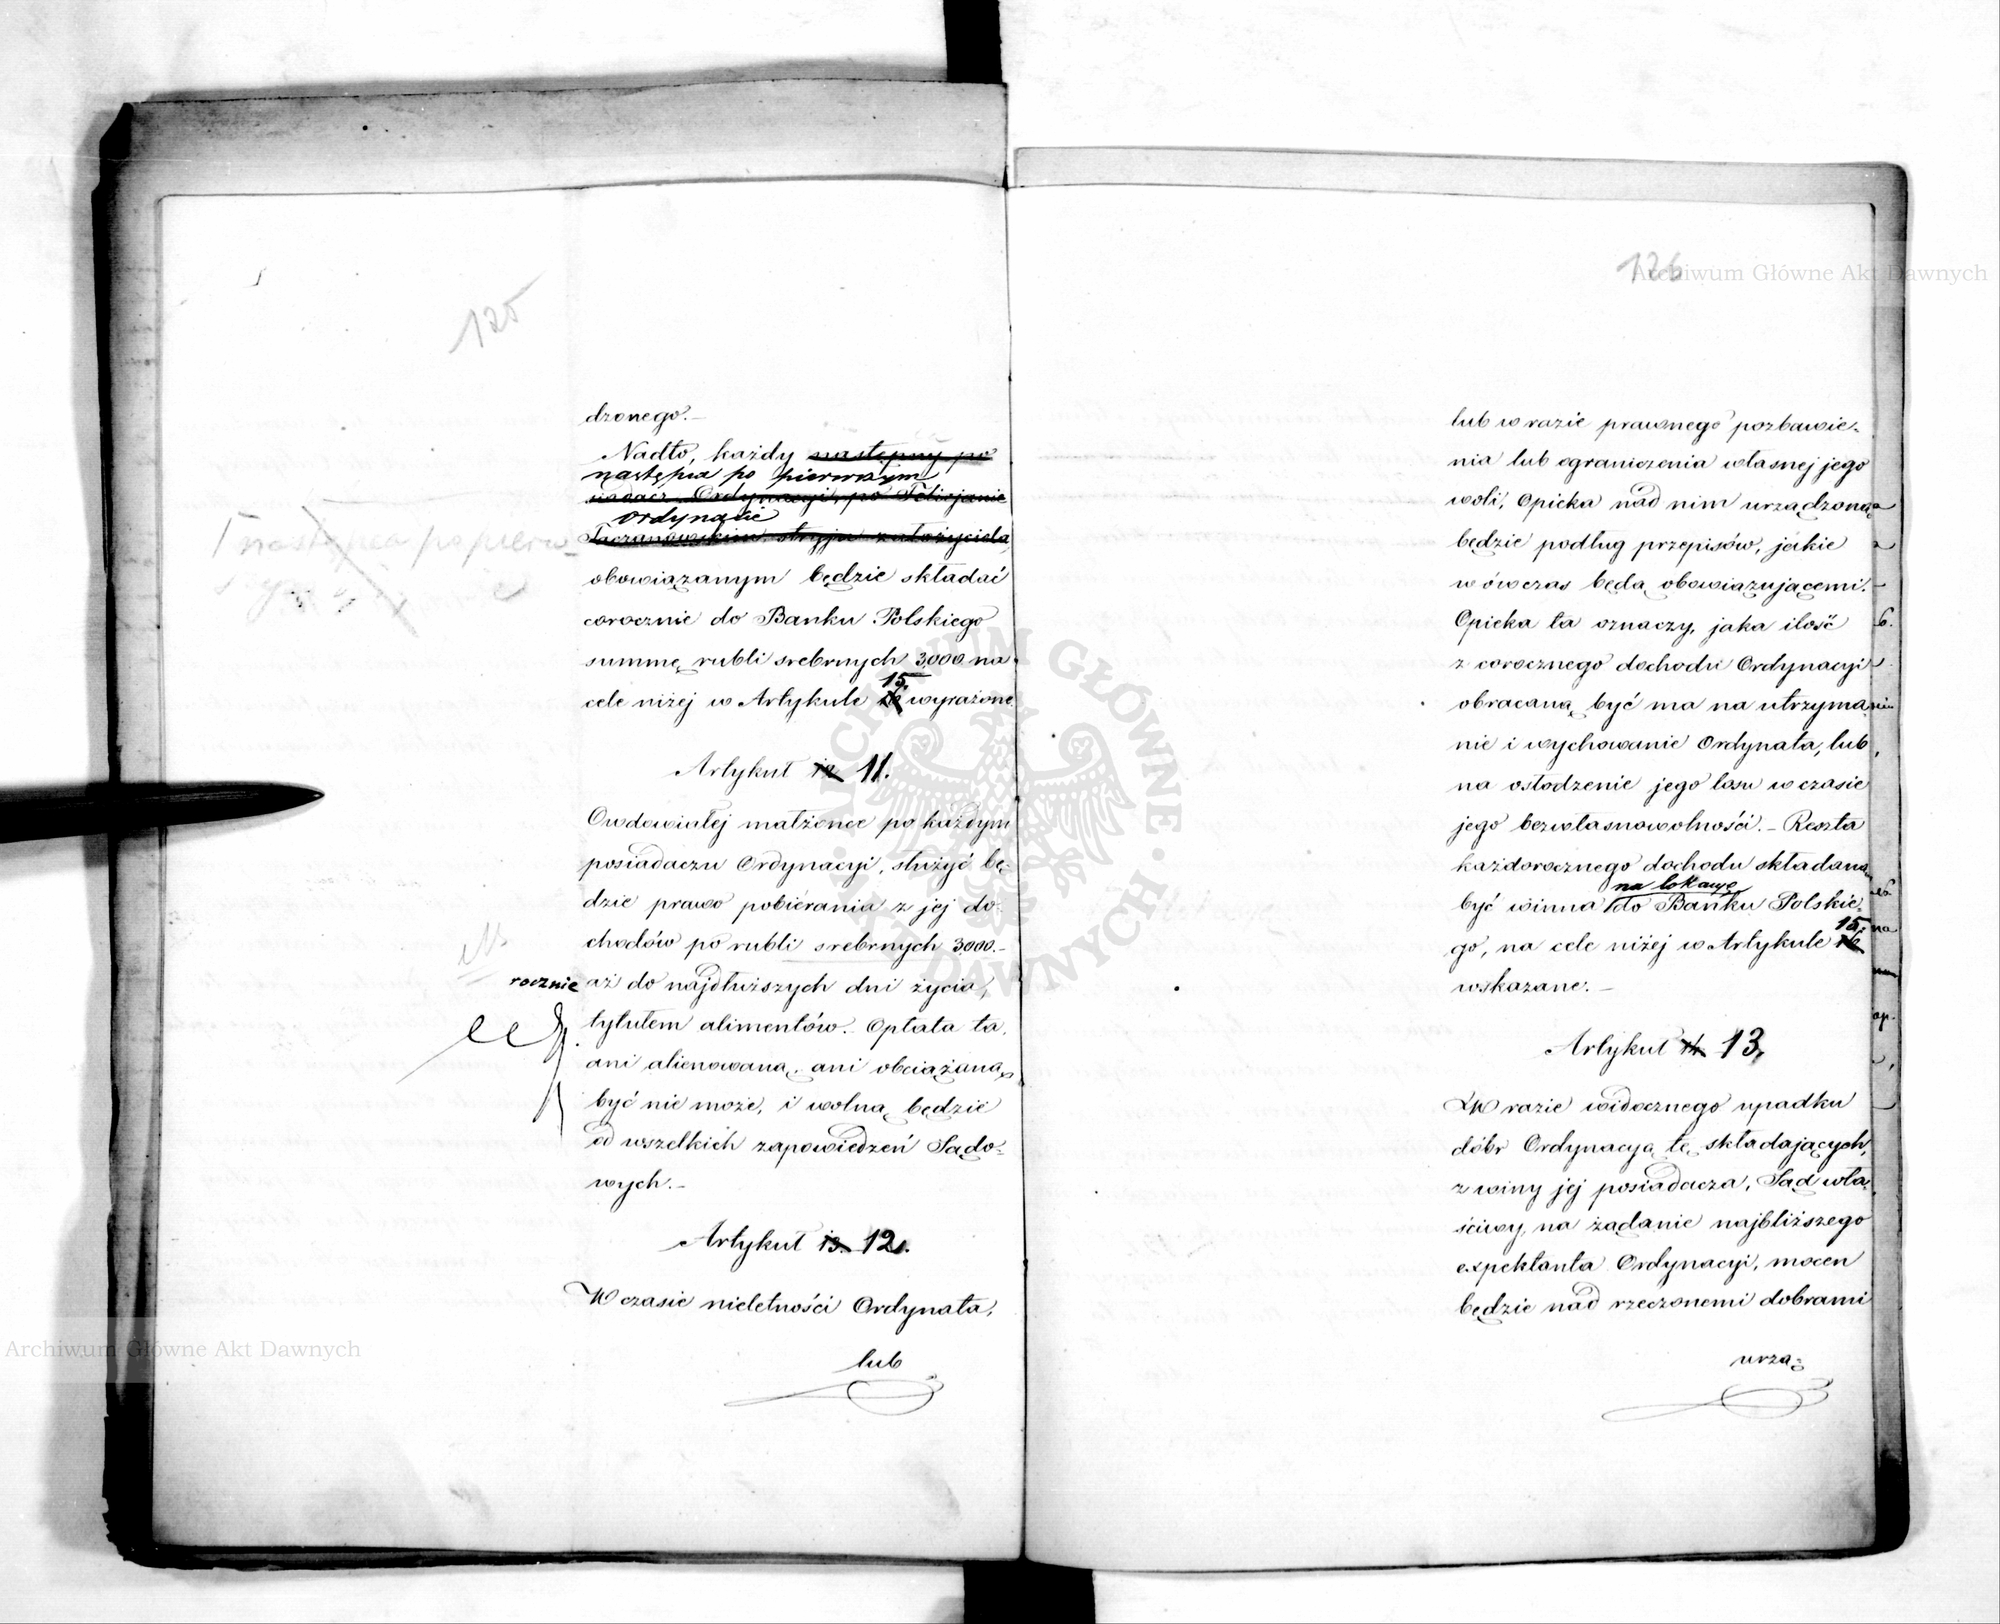 125
dzonego.–
Nadto, każdy następny po
następca po pierwszym
siadacz Ordynacyi, po Felicjanie
Ordynacie
Taczanowskim stryju założyciela,
obowiązanym będzie składać
corocznie do Banku Polskiego
summę rubli srebrnych 3,000 na
15.
cele niżej w Artykule 16 wyrażone.
Artykuł 12 11.
Owdowiałej małżonce po każdym
posiadaczu Ordynacyi, służyć bę-
dzie prawo pobierania z jej do-
chodów po rubli srebrnych 3,000.–
rocznie aż do najdłuższych dni życia,
tytułem alimentów. Opłata ta,
ani alienowaną, ani obciążaną
być nie może, i wolną będzie
od wszelkich zapowiedzeń Sądo-
wych.–
Artykuł 13. 12.
W czasie nieletności Ordynata,
lub
następca po pierw-
126
lub w razie prawnego pozbawie-
nia lub ograniczenia własnej jego
woli, Opieka nad nim urządzoną
będzie podług przepisów, jakie
w ówczas będą obowiązującemi.
Opieka ta oznaczy, jaka ilość
z corocznego dochodu Ordynacyi
obracaną być ma na utrzyma-
nie i wychowanie Ordynata, lub
na osłodzenie jego losu w czasie
jego bezwłasnowolności.– Reszta
każdorocznego dochodu składaną
na lokacyę
być winna do Banku Polskie-
15.
go, na cele niżej w Artykule 16
wskazane.–
Artykuł 14. 13.
W razie widocznego upadku
dóbr Ordynacyą tę składających,
z winy jej posiadacza, Sąd wła-
ściwy, na żądanie najbliższego
expektanta Ordynacyi, mocen
będzie nad rzeczonemi dobrami
urzą-
Archiwum Główne Akt Dawnych
Archiwum Główne Akt Dawnych
ARCHIWUM GŁÓWNE AKT DAWNYCH